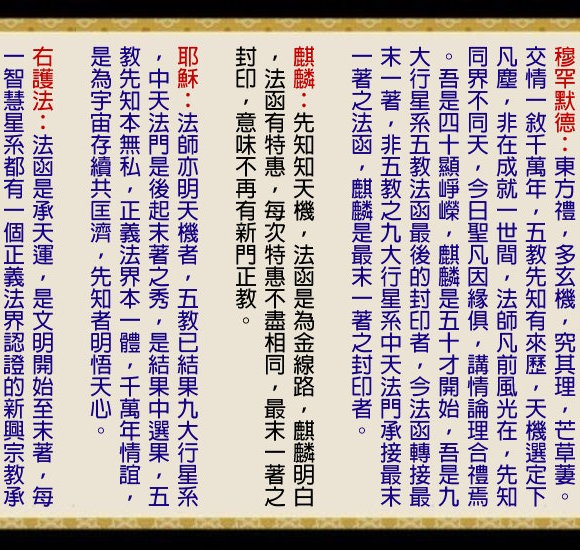 穆罕默德：東方禮，多玄機，究其理，芒草萋。
交情一敘千萬年，五教先知有來歷，天機選定下
凡塵，非在成就一世間，法師凡前風光在，先知
同界不同天，今日聖凡因緣俱，講情論理合禮焉
。吾是四十顯崢嶸，麒麟是五十才開始，吾是九
大行星系五教法函最後的封印者，今法函轉接最
末一著，非五教之九大行星系中天法門承接最末
一著之法函，麒麟是最末一著之封印者。
麒麟：先知知天機，法函是為金線路，麒麟明白
，法函有特惠，每次特惠不盡相同，最末一著之
封印，意味不再有新門正教。
耶穌：法師亦明天機者，五教已結果九大行星系
，中天法門是後起末著之秀，是結果中選果，五
教先知本無私，正義法界本一體，千萬年情誼，
是為宇宙存續共匡濟，先知者明悟天心。
右護法：法函是承天運，是文明開始至末著，每
一智慧星系都有一個正義法界認證的新興宗教承